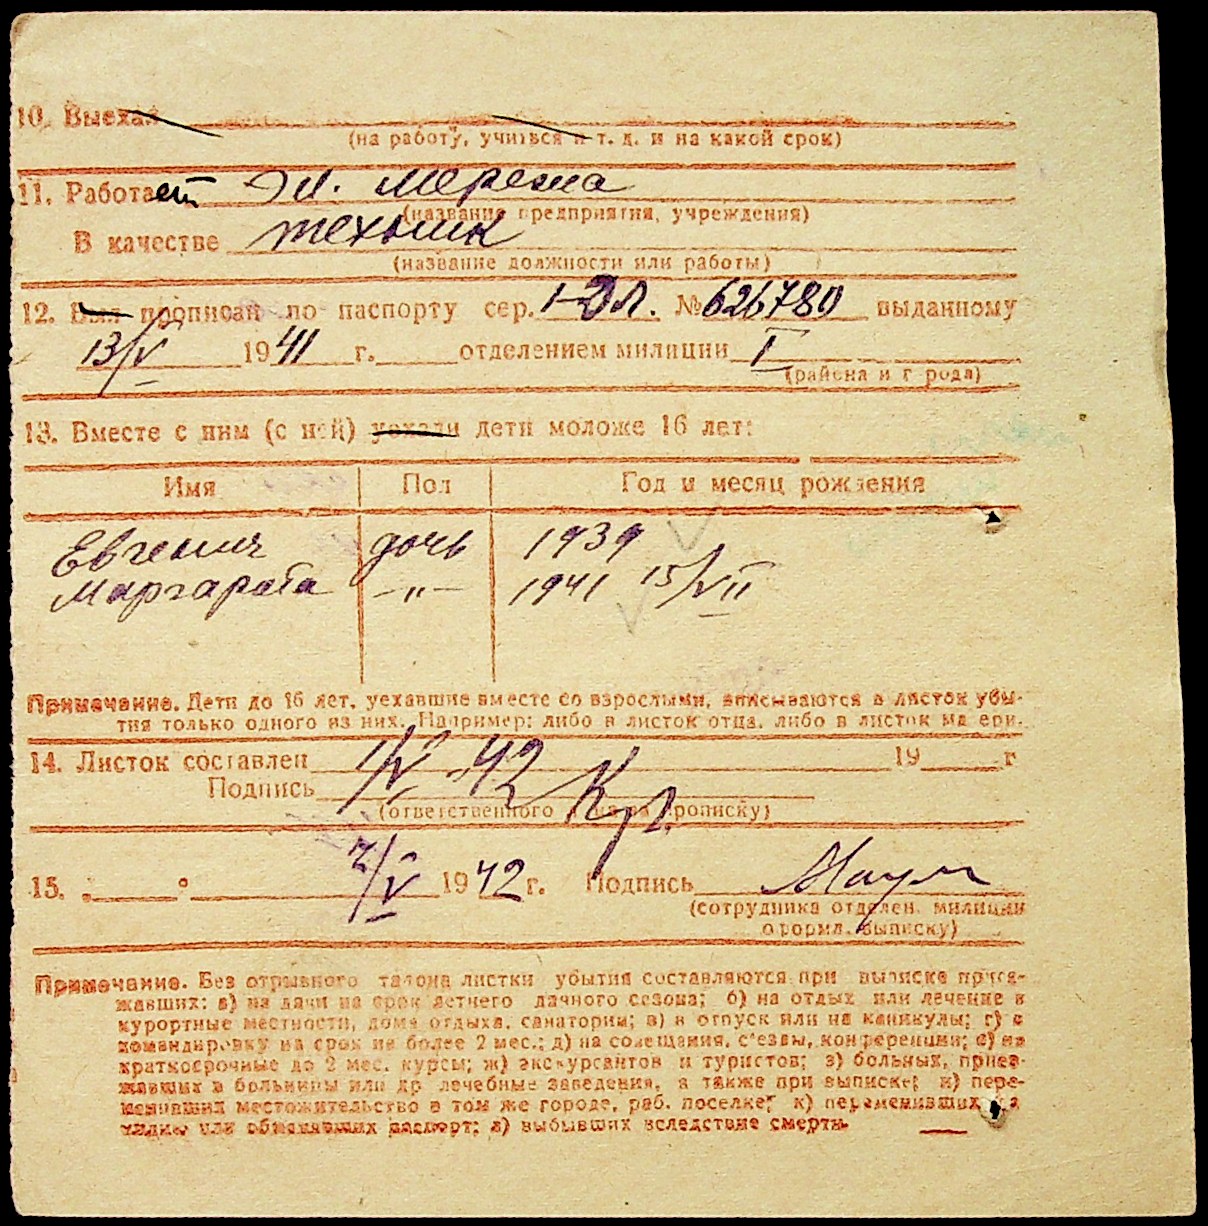 10. Выехал
(на работу, учиться и т. д. и на какой срок)
11. Работает Эл. Мережа
(название предприятия, учреждения)
В качестве техник
(название должности или работы)
12. Был прописан по паспорту сер. 1-ДЛ. № 626780 выданному
13/V 1941 г. отделением милиции I
(района и города)
13. Вместе с ним (с ней) уехали дети моложе 16 лет:
Имя Пол Год и месяц рождения
Евгения дочь 1939
Маргарета —"— 1941 15/VII
Примечание. Дети до 16 лет, уехавшие вместе со взрослыми, вписываются в листок убы-
тия только одного из них. Например: либо в листок отца, либо в листок матери.
14. Листок составлен 1/V-42 19 г
Подпись
(ответственного за прописку)
15. „ " 2/V 1942 г. Подпись
(сотрудника отделен. милиции
оформл. выписку)
Примечание. Без отрывного талона листки убытия составляются при выписке приез-
жавших: а) на дачи на срок летнего дачного сезона; б) на отдых или лечение в
курортные местности, дома отдыха, санатории; в) в отпуск или на каникулы; г) в
командировку на срок не более 2 мес.; д) на совещания, с'езды, конференции; е) на
краткосрочные до 2 мес. курсы; ж) экскурсантов и туристов; з) больных, приез-
жавших в больницы или др лечебные заведения, а также при выписке; и) пере-
менивших местожительство в том же городе, раб. поселке; к) переменивших
или обменявших паспорт; л) выбывших вследствие смерти.